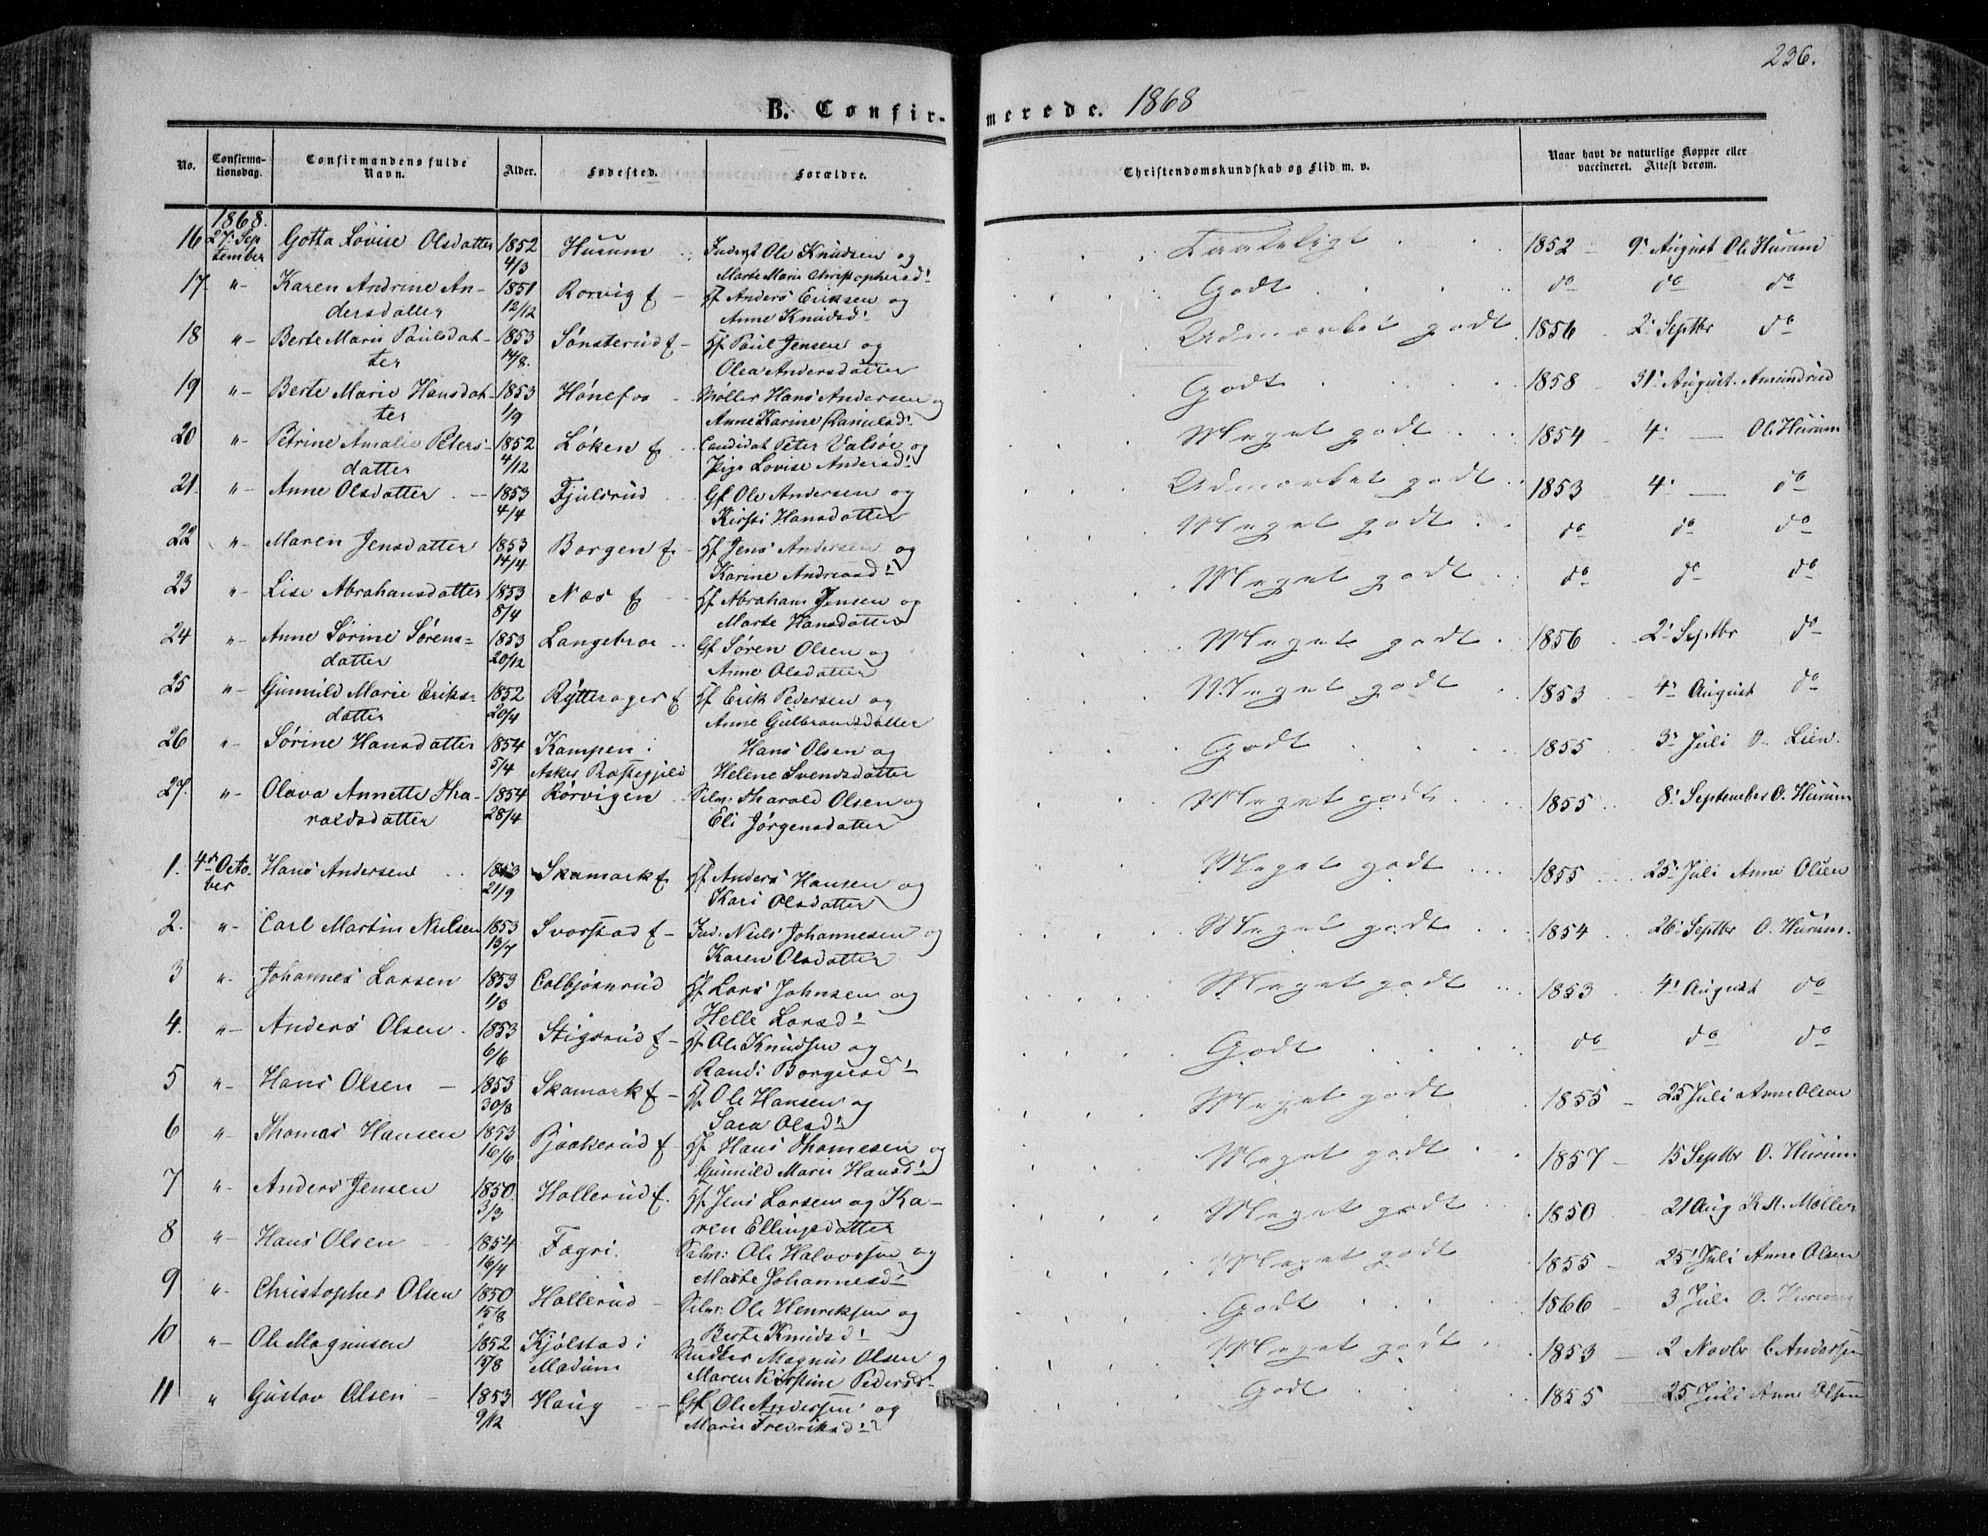 236.
B. Confirmerede. 1868
No. Confirmationsdag. Confirmandens fulde Navn. Alder. Fødested. Forældre. Christendomskundskab og Flid m. v. Naar havt de naturlige Kopper eller vaccineret. Attest derom.
1868.
16 27. September Lovise Olsdatter 1852 4/3 Hurum Ole Knudsen og Taaleligt 1852 9' August Ole Hurum
Marte Marie Christophersd!
17 "- Karen Andrine Andersdatter 1851 12/12 Rorvig f Gf Anders Eriksen og Godt do do do
Anne Knudsd!
18 "- Berte Marie Paulsdatter 1853 14/8. Sønsterud f Gf Paul Jensen og Udmærket godt 1856 2' Septbr do
Olea Andersdatter
19 "- Berte Marie Hansdatter 1853 1/9 Hønefos Møller Hans Andersen og Godt 1858 31' August Amundrud
Anne Karine Danielsd!
20 "- Petrine Amalie Petersdatter 1852 4/12 Løken f Candidat Peter Valsøe og Meget godt 1854 4' — Ole Hurum
Pige Lovise Andersd!
21. "- Anne Olsdatter 1853 4/4 Fjulsrud Gf Ole Andersen og Udmærket godt 1853 4' — do
Kirsti Hansdatter
22 "- Maren Jensdatter 1853 14/4 Borgen f Gf Jens Andersen og Meget godt do do do
Karine Andreasd!
23 "- Lise Abrahamsdatter 1853 8/4 Næs f Gf Abraham Jensen og Meget godt do do do
Marte Hansdatter
24 "- Anne Sørine Sørensdatter 1853 20/12 Langebroe Gf Søren Olsen og Meget godt 1856 2' Septbr do
Anne Olsdatter
25 "- Gunnild Marie Eriksdatter 1852 20/4 Rytterager f Gf Erik Pedersen og Meget godt 1853 4' August do
Anne Gulbrandsdatter
26 "- Sørine Hansdatter 1854 5/4 Kampen i Asker Præstegjeld Hans Olsen og Godt 1855 3' Juli O. Lien.
Helene Svendsdatter
27. "- Olava Annette Tharaldsdatter 1854 28/4 Rørvigen Selv: Tharald Olsen og Meget godt 1855 8' September O. Hurum
Eli Jørgensdatter
1. 4de October Hans Andersen 1853 21/9 Skamark f Gf Anders Hansen og Meget godt 1855 25' Juli Anne Olsen
Kari Olsdatter
2. "- Carl Martin Nielsen 1853 13/7 Svarstad f Ind: Niels Johannesen og Meget godt 1854 26' Septbr O. Hurum.
Karen Olsdatter
3 "- Johannes Larsen 1853 1/3 Colbjørnrud Gf Lars Johnsen og Meget godt 1853 4' August do
Helle Larsd!
4. "- Anders Olsen 1853 6/6 Stigsrud f Gf Ole Knudsen og Godt do do do
Randi Borgersd!
5 "- Hans Olsen 1853 30/8 Skamark f Gf Ole Hansen og Meget godt 1855 25 Juli Anne Olsen
Sara Olsd!
6 "- Thomas Hansen 1853 16/6 Bjaakerud f Gf Hans Thomesen og Meget godt 1857 15 Septbr O. Hurum
Gunnild Marie Hansd!
7 "- Anders Jensen 1850. 3/3 Hollerud f. Gf Jens Larsen og Karen Ellingsdatter Meget godt 1850 21 Aug K. M. Møller
8 "- Hans Olsen 1854 16/4 Fægri. Selv: Ole Halvorsen og Meget godt 1855 25' Juli Anne Olsen
Marte Johannesd!
9 "- Christopher Olsen 1850 15/8 Hollerud Selv: Ole Henriksen og Godt 1866 3 Juli O. Hurum
Berte Knudsd!
10 "- Ole Magnusen 1852 15/8 Kjølstad i Modum Magnus Olsen Meget godt 1853 2 Novbr C Andersen
Maren Kirstine Pedersd!
11 " Gustav Olsen 1853 9/12 Haug Gf Ole Andersen og Godt 1855 25 Juli Anne Olsen
Marie Fredriksd!